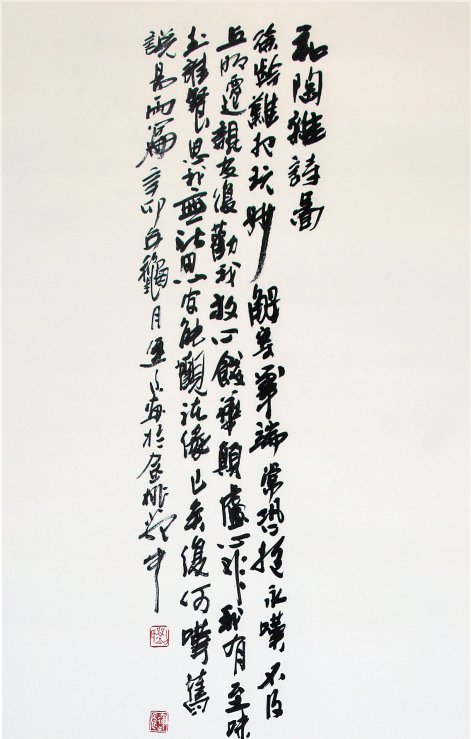 和陶雜詩圖
餘齡難把玩妙解寄筆端常恐抱永嘆不及
丘明遷親友復勸我放心餞華顛虛非我有至味
知誰餐思我無所思安能觀諸緣已矣復何嘆舊
說易兩篇辛卯月於中